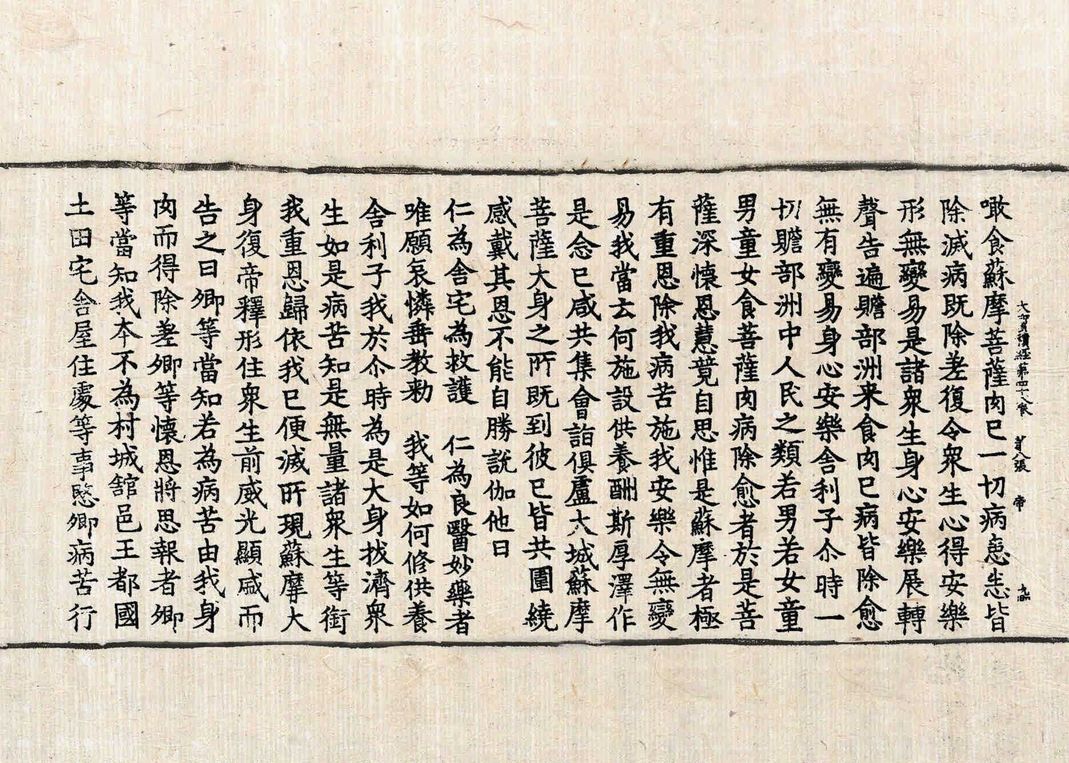 大寶積經第四十八卷 第八張 帝
噉食蘇摩菩薩肉已一切病患悉皆
除滅病既除差復令眾生心得安樂
形無變易是諸眾生身心安樂展轉
聲告遍贍部洲来食肉已病皆除愈
無有變易身心安樂舍利子尒時一
切贍部洲中人民之類若男若女童
男童女食菩薩肉病除愈者於是菩
薩深懷恩慧竟自思惟是蘇摩者極
有重恩除我病苦施我安樂令無變
易我當云何施設供養酬斯厚澤作
是念已咸共集會詣俱盧大城蘇摩
菩薩大身之所既到彼已皆共圍繞
感戴其恩不能自勝說伽他曰
仁為舍宅為救護 仁為良醫妙藥者
唯願哀憐垂教勑 我等如何修供養
舍利子我於尒時為是大身拔濟眾
生如是病苦知是無量諸眾生等銜
我重恩歸依我已便滅所現蘇摩大
身復帝釋形住眾生前威光顯盛而
告之曰卿等當知若為病苦由我身
肉而得除差卿等懷恩將思報者卿
等當知我夲不為村城舘邑王都國
土田宅舍屋住處等事愍卿病苦行